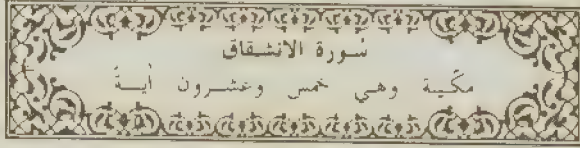 سورة الانشقاق
مكّية وهي خمس وعشرون أية